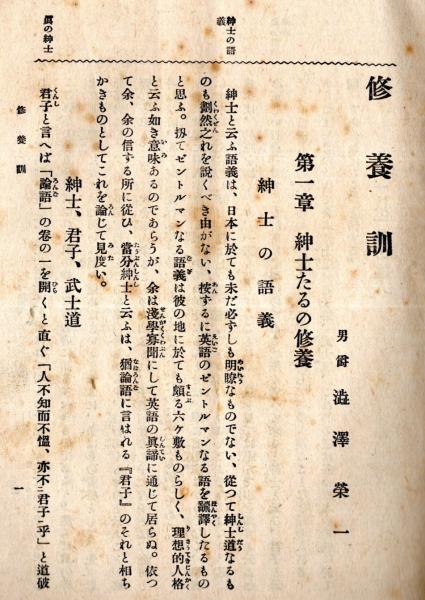 紳士の語義
眞の紳士
修養訓
男爵 澁澤榮一
第一章 紳士たるの修養
紳士の語義
紳士と云ふ語義は、日本に於ても未だ必ずしも明瞭なものでない、從つて紳士道なるも
のも劃然之れを說くべき由がない、按するに英語のゼントルマンなる語を飜譯したるもの
と思ふ。扨てゼントルマンなる語義は彼の地に於ても頗る六ケ敷ものらしく、理想的人格
と云ふ如き意味あるのであらうが、余は淺學寡聞にして英語の眞諦に通じて居らぬ。依つ
て余、余の信する所に從ひ、當分紳士と云ふは、猶論語に言はれる『君子』のそれと相ち
かきものとしてこれを論じて見度い。
紳士、君子、武士道
君子と言へば「論語」の卷の一を開くと直ぐ「人不知而不慍、亦不君子乎」と道破
修養訓 一